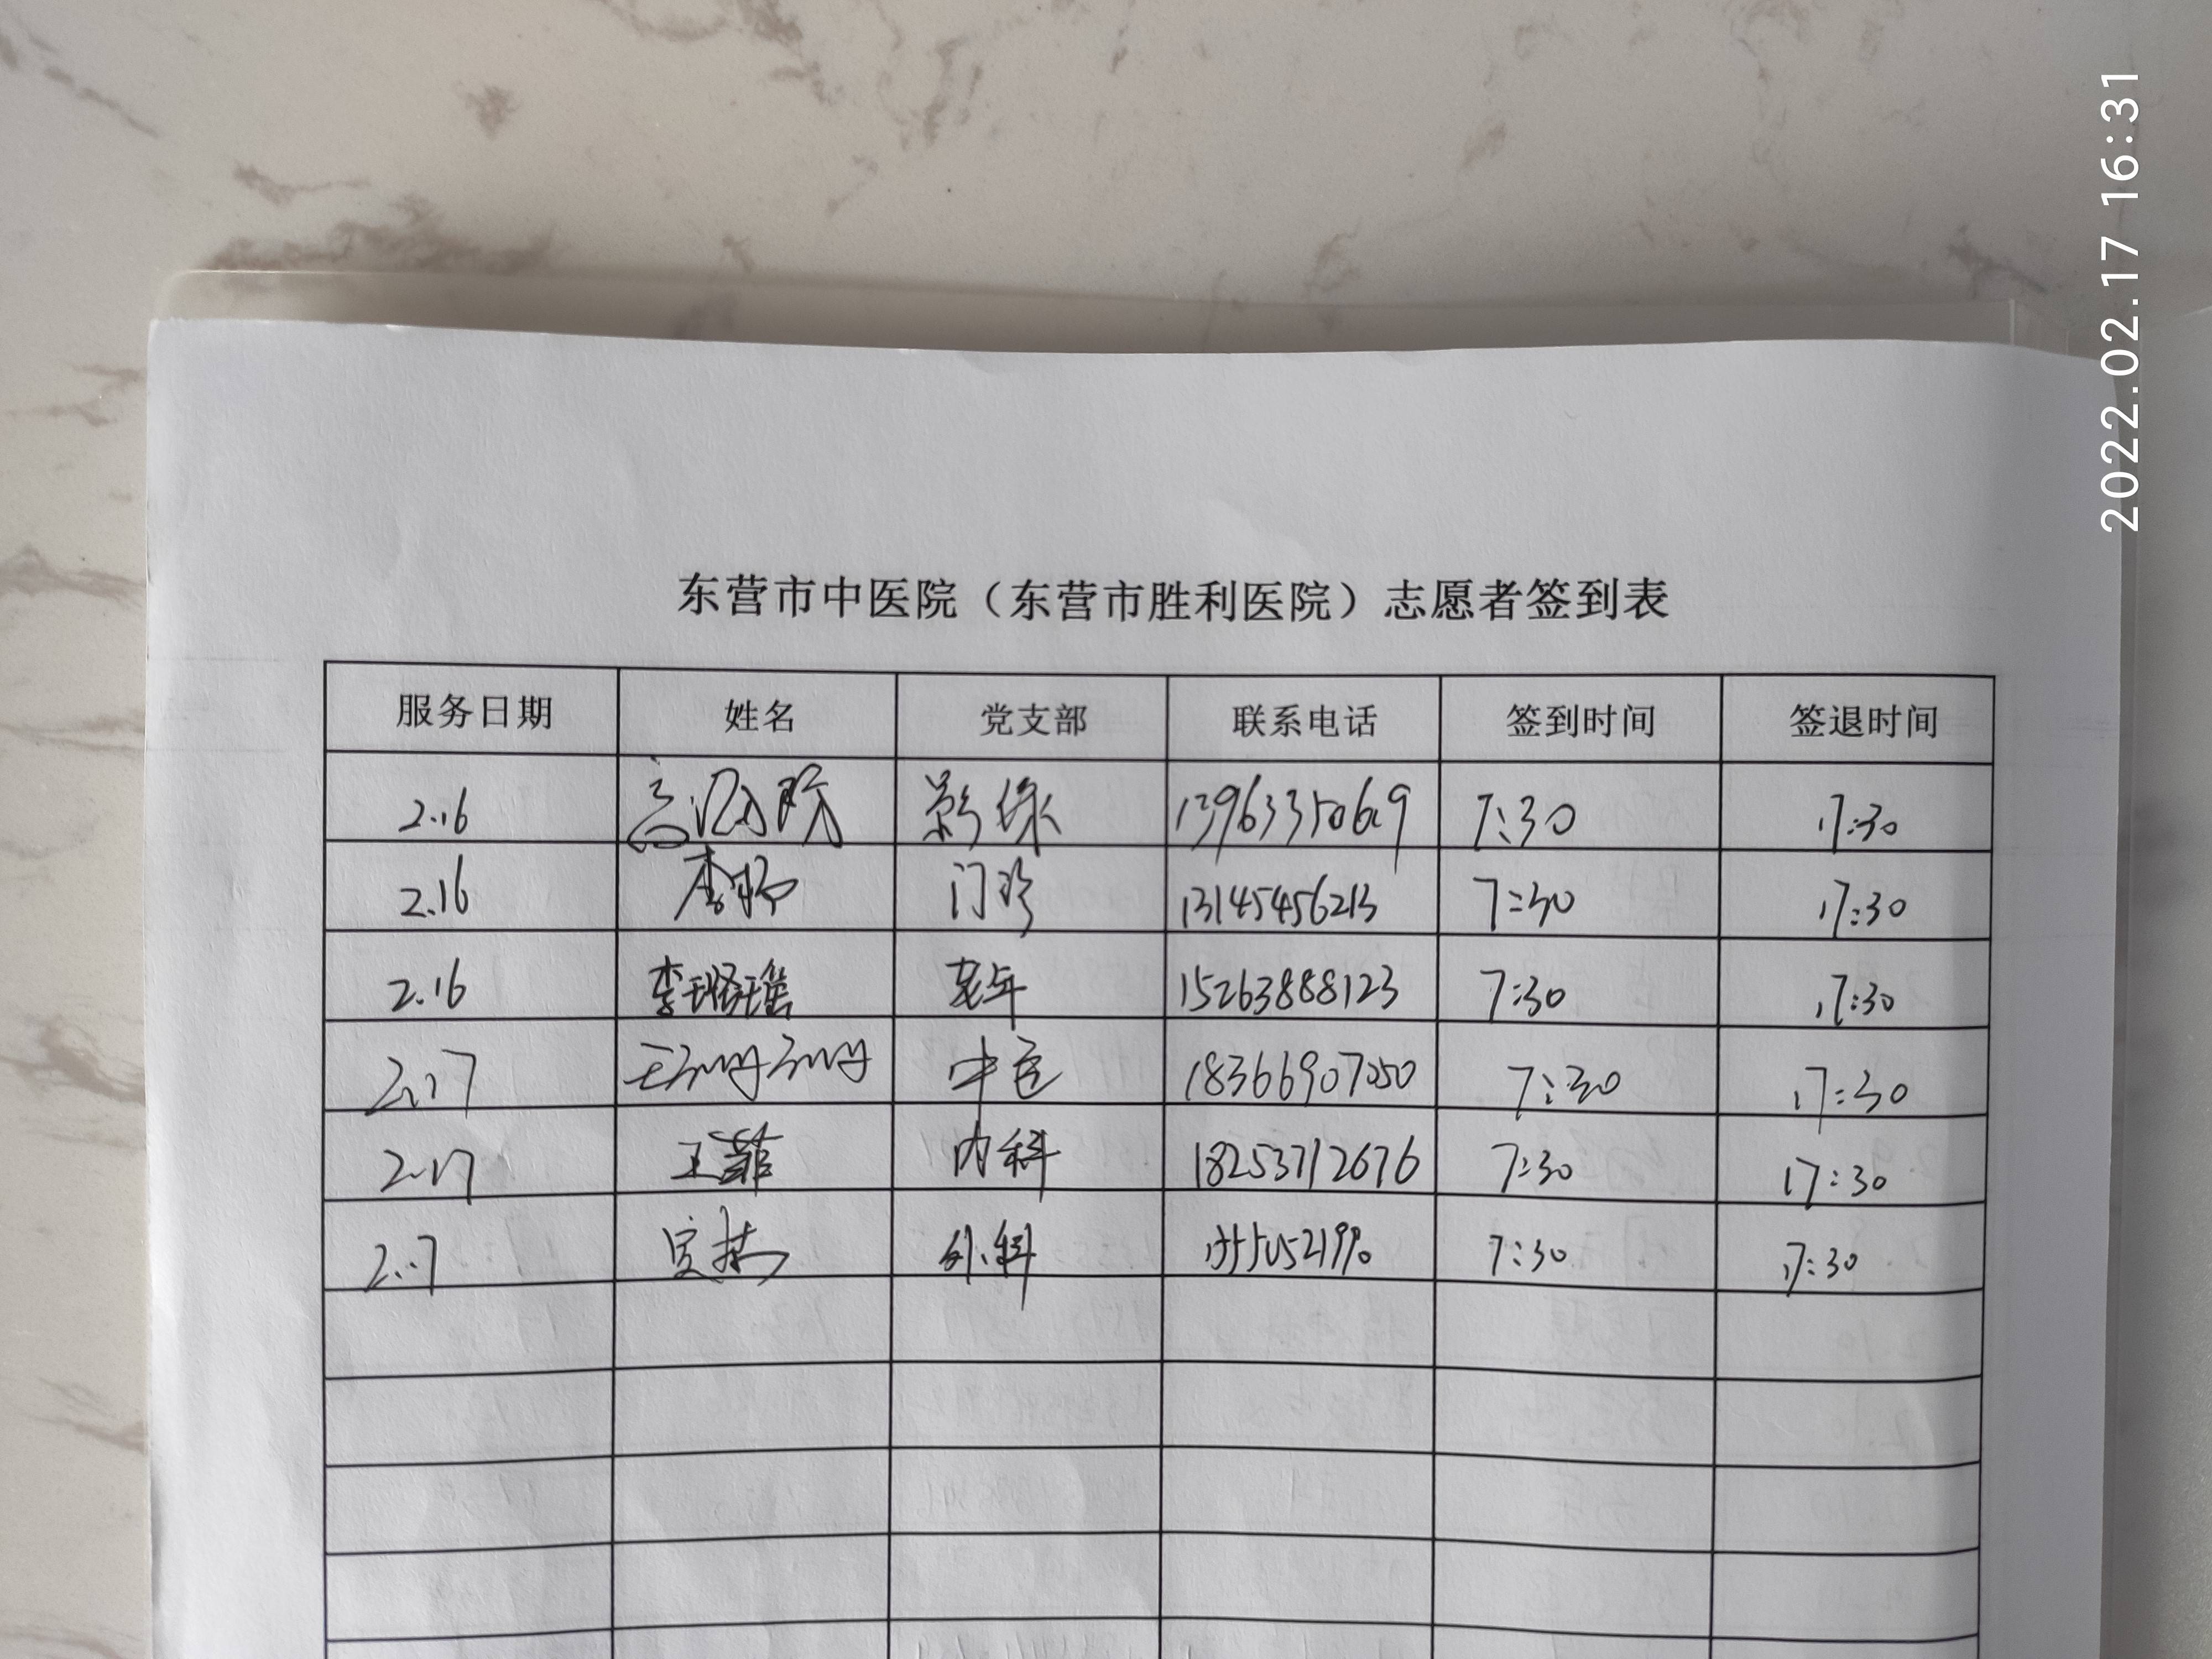 2022.02.17 16:31
东营市中医院（东营市胜利医院）志愿者签到表
服务日期 姓名 党支部 联系电话 签到时间 签退时间
2.16 影像 13963350619 7:30 17:30
2.16 李婷 门诊 13145456213 7:30 17:30
2.16 李瑶 老年 15263888123 7:30 17:30
2.17 王 中医 18366907050 7:30 17:30
2.17 王菲 内科 18253712676 7:30 17:30
2.17 外科 7:30 17:30